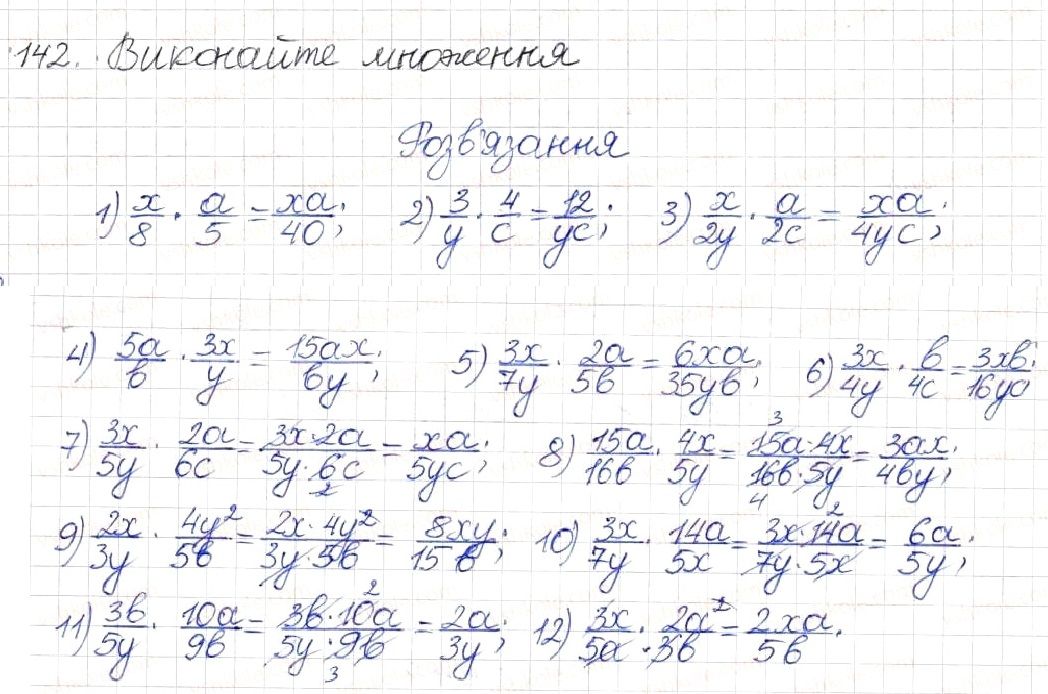 142. Виконайте множення
Розв'язання
1) x/8 · a/5 = xa/40; 2) 3/y · 4/c = 12/yc; 3) x/2y · a/2c = xa/4yc;
4) 5a/b · 3x/y = 15ax/by; 5) 3x/7y · 2a/5b = 6xa/35yb; 6) 3x/4y · b/4c = 3xb/16yc;
7) 3x/5y · 2a/6c = 3x·2a/5y·6c = xa/5yc; 8) 15a/16b · 4x/5y = 15a·4x/16b·5y = 3ax/4by;
9) 2x/3y · 4y²/5b = 2x·4y²/3y·5b = 8xy/15b; 10) 3x/7y · 14a/5x = 3x·14a/7y·5x = 6a/5y;
11) 3b/5y · 10a/9b = 3b·10a/5y·9b = 2a/3y; 12) 3x/5a · 2a²/3b = 2xa/5b.